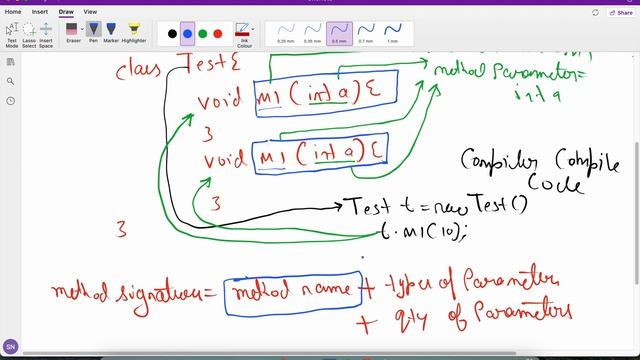 Home Insert Draw View
Editing
Share
Text Mode
Lasso Select
Insert Space
Eraser
Pen
Marker
Highlighter
Ink Colour
0.25 mm
0.35 mm
0.5 mm
0.7 mm
1 mm
class Test {
method Parameter=
int a
void m1 (int a) {
3
void m1 (int a) {
3
Compiler Compile
Code
Test t = new Test()
t.m1(10);
3
method signature = method name + type of Parameters
+ qty of Parameters
SN